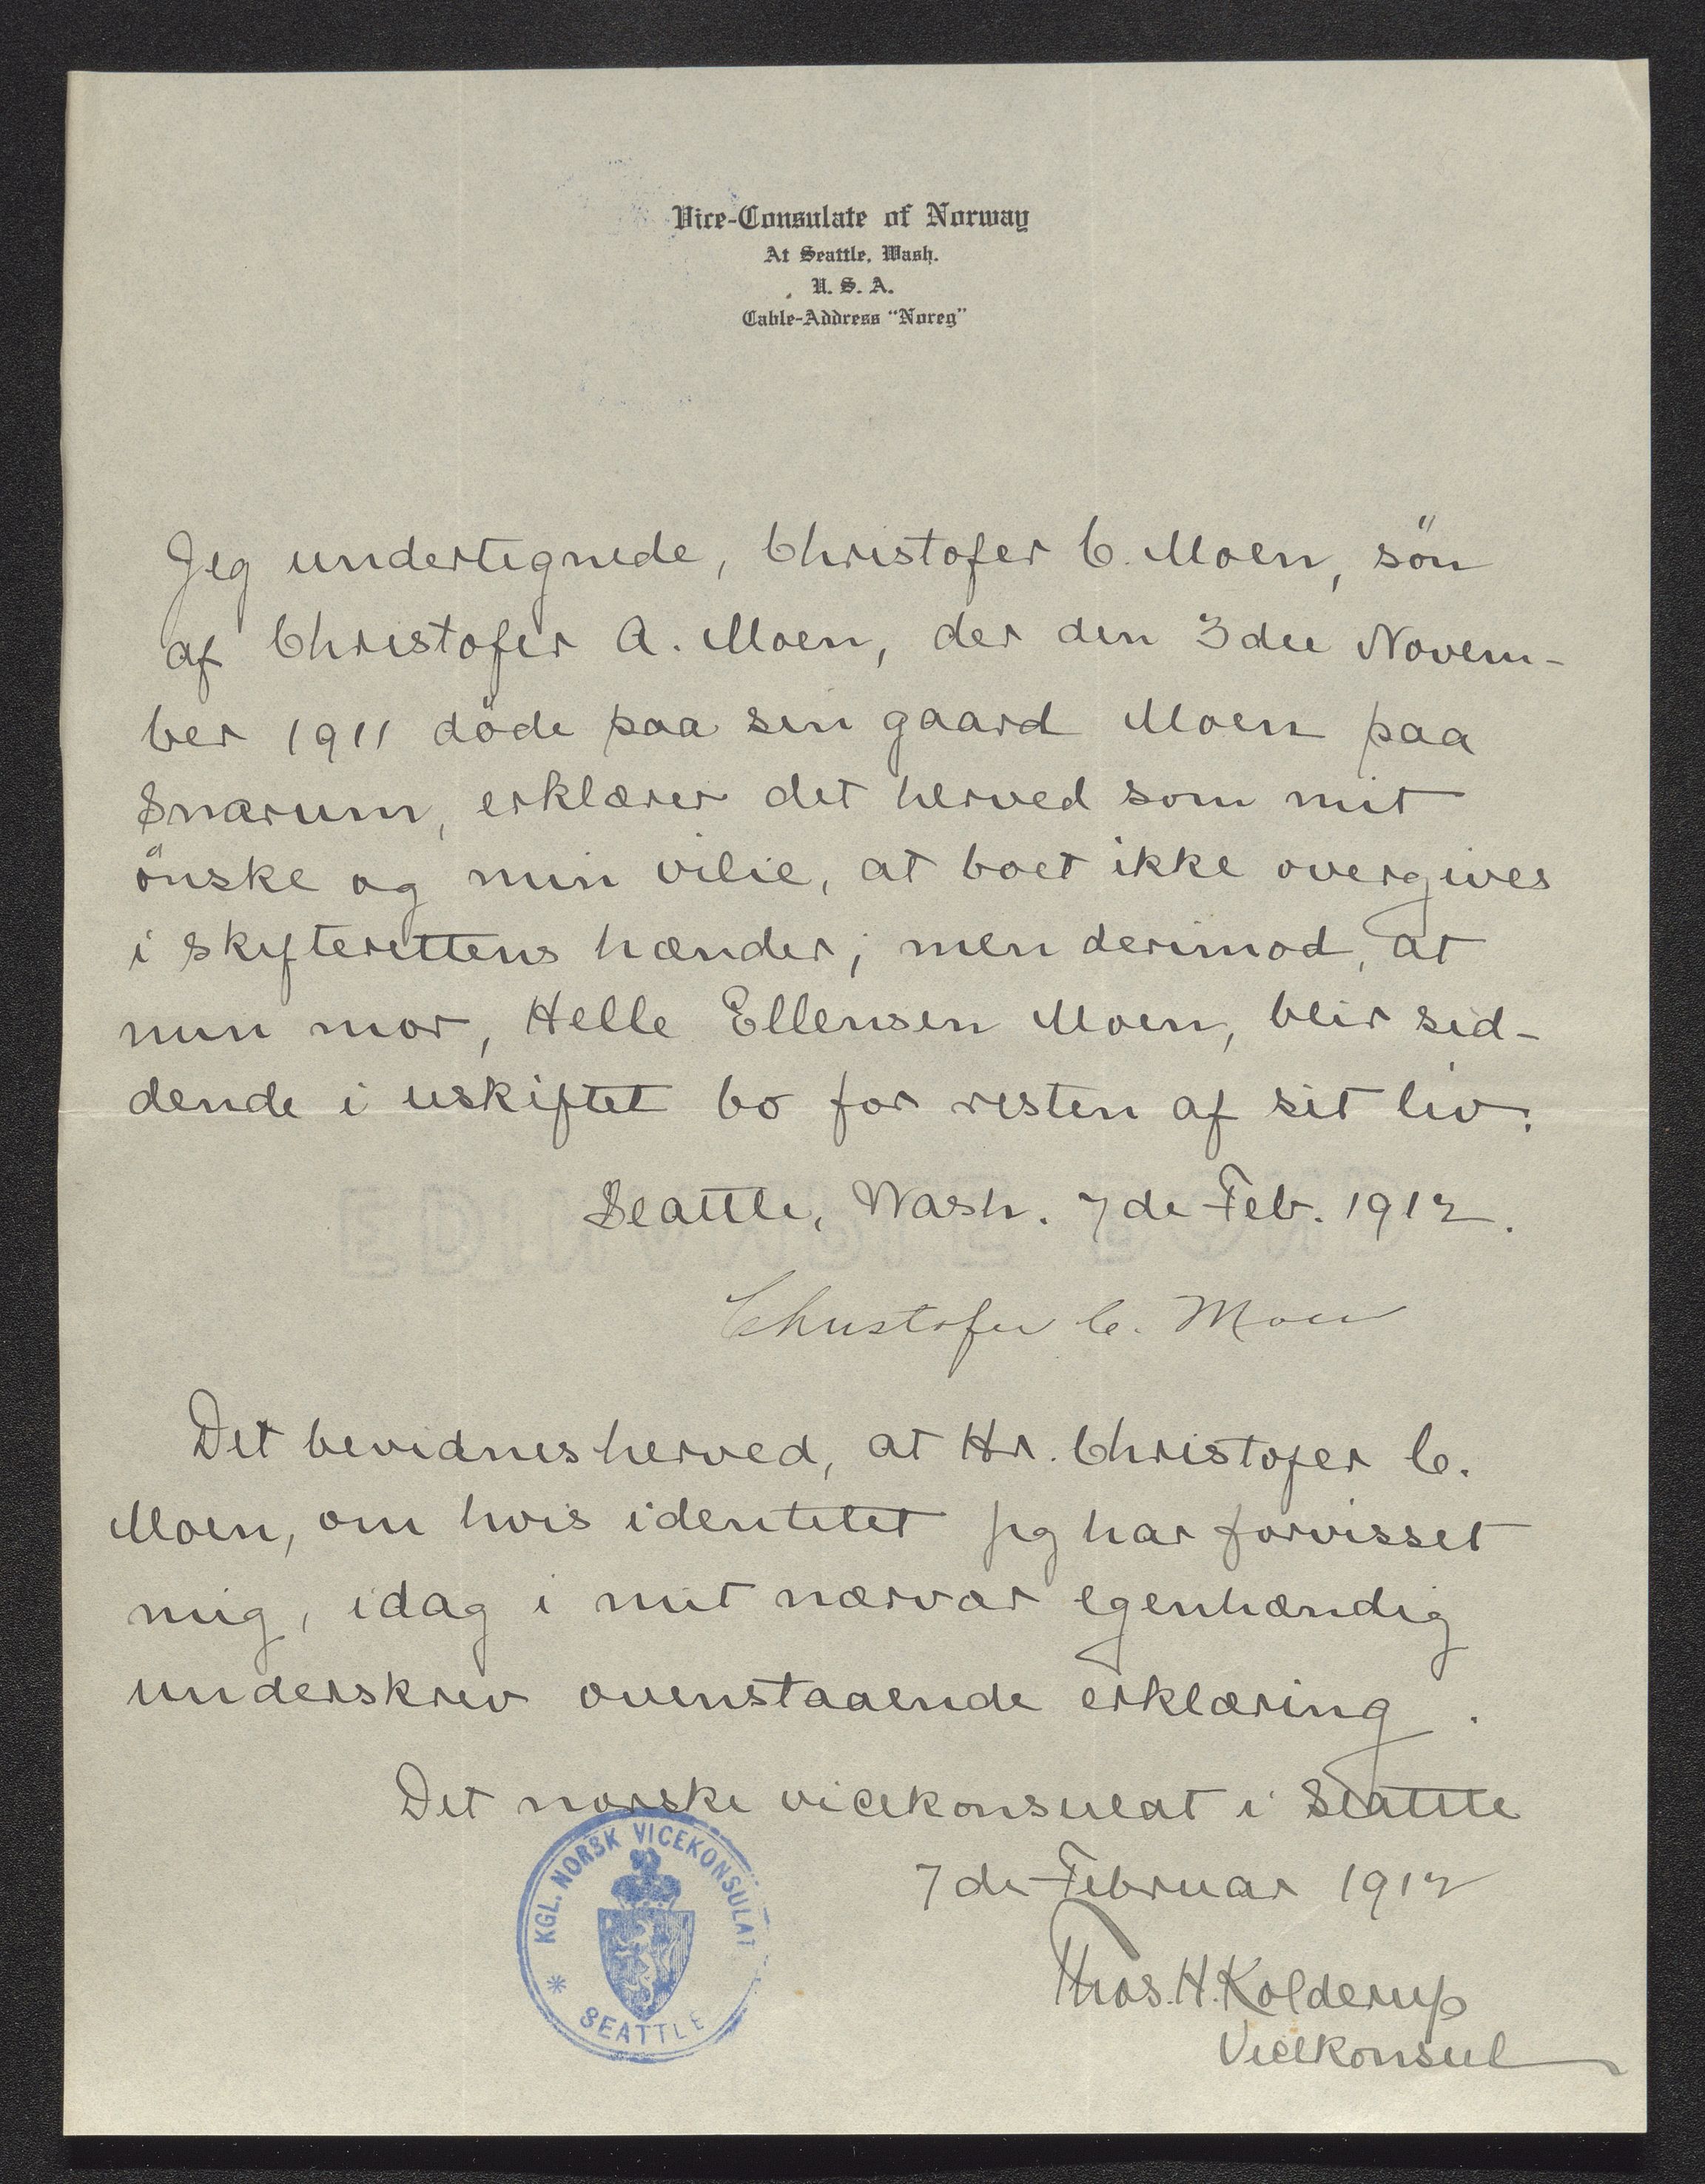 Vice-Consulate of Norway
At Seattle, Wash.
U. S. A.
Cable-Address "Noreg"
Jeg undertegnede, Christofer C. Moen, sön
af Christofer A. Moen, der den 3die Novem-
ber 1911 döde paa sin gaard Moen paa
Snarum, erklærer det herved som mit
önske og min vilie, at boet ikke overgives
i skifterettens hænder; men derimod, at
min mor, Helle Ellensen Moen, blir sid-
dende i uskiftet bo for resten af sit liv.
Seattle, Wash. 7de Feb. 1912.
Christofer C. Moen
Det bevidnes herved, at Hr. Christofer C.
Moen, om hvis identitet jeg har forvisset
mig, idag i mit nærvær egenhændig
underskrev ovenstaaende erklæring.
Det norske vicekonsulat i Seattle
7de Februar 1912
Thos. H. Kolderup
Vicekonsul
KGL. NORSK VICEKONSULAT
* SEATTLE